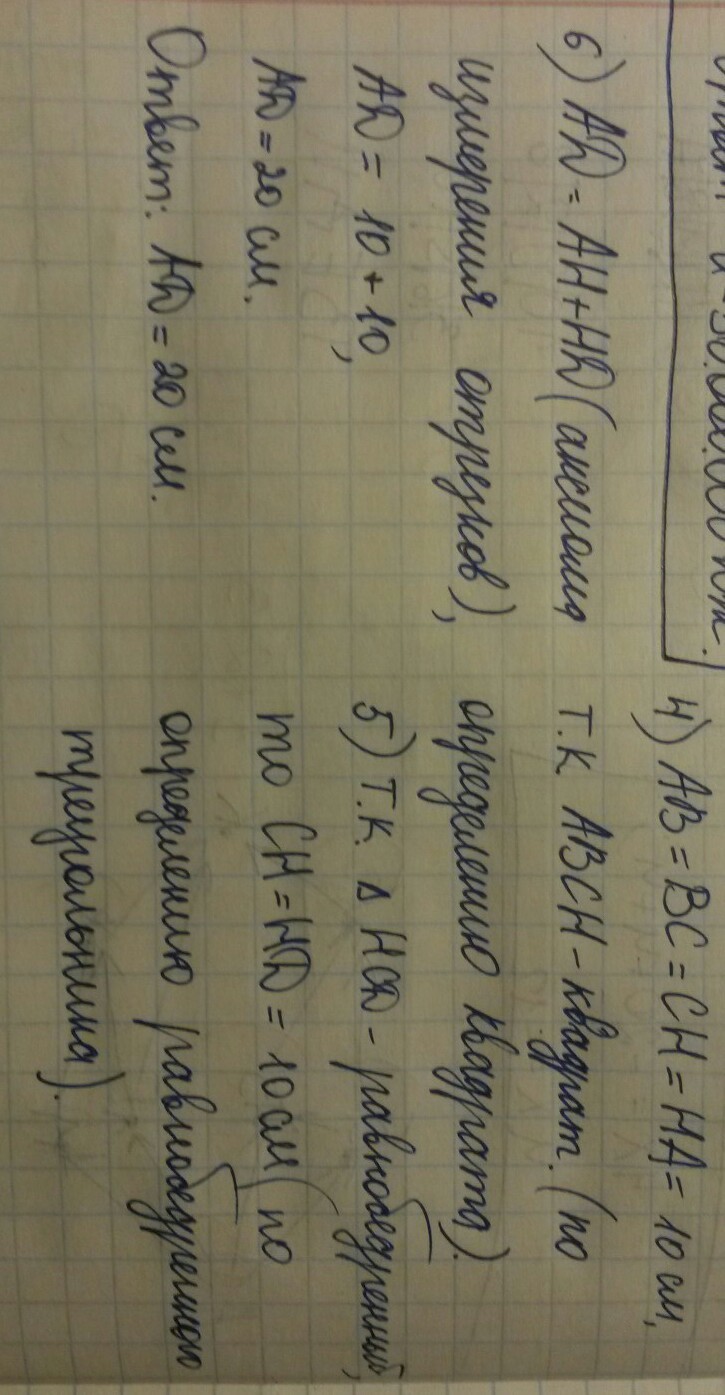 4) AB = BC = CH = HA = 10 см,
т.к ABCH - квадрат. (по
определению квадрата).
5) т.к. Δ HCD - равнобедренный,
то CH = HD = 10 см (по
определению равнобедренного
треугольника).
6) AD = AH + HD (аксиома
измерения отрезков),
AD = 10 + 10,
AD = 20 см.
Ответ: AD = 20 см.